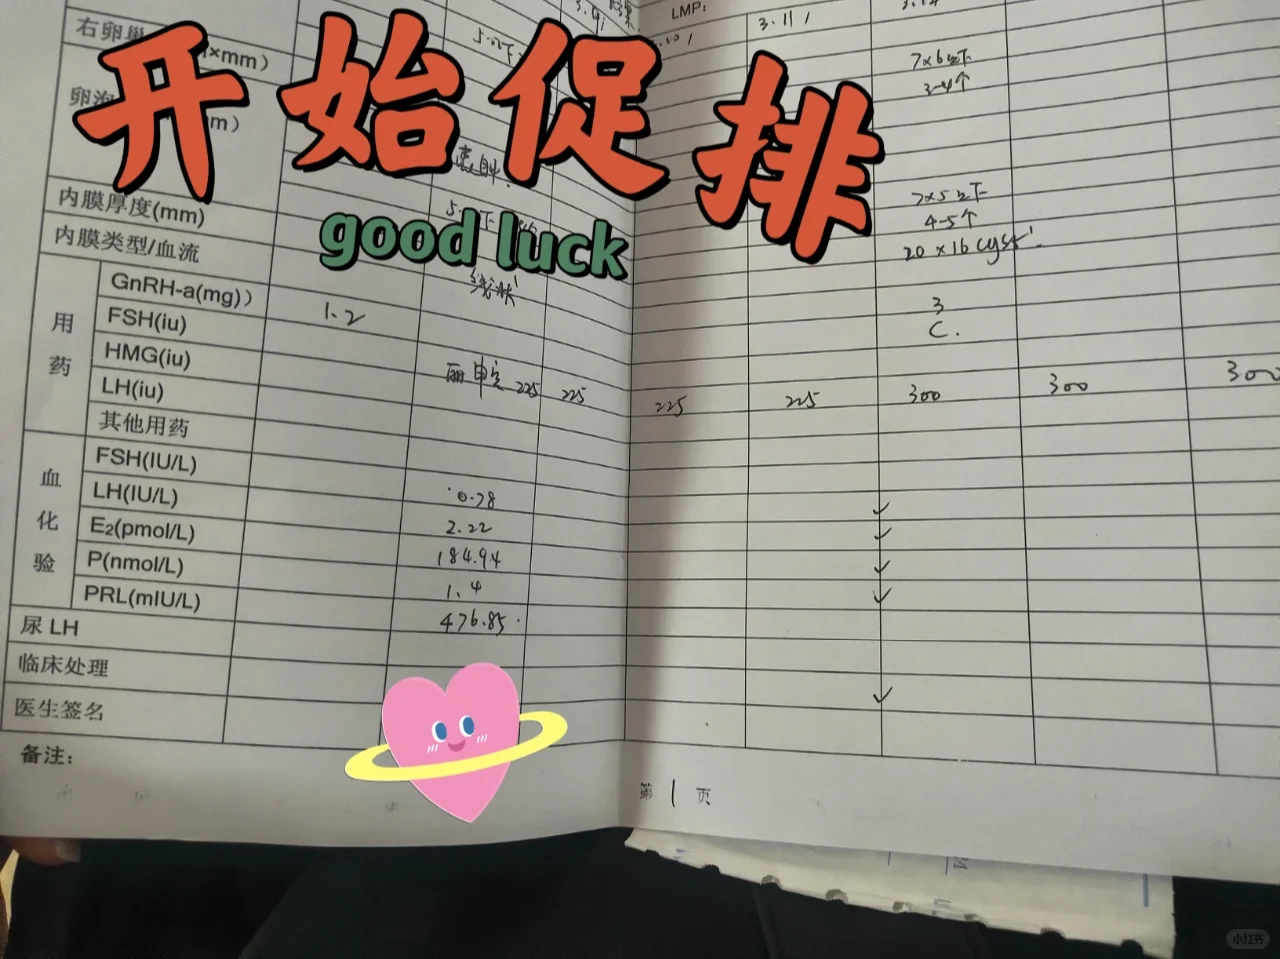 LMP:
3.11
右卵巢
×mm)
7×6以下
3-4个
开始促排
卵泡
m)
good luck
内膜厚度(mm)
7×5以下
4-5个
内膜类型/血流
20×16 cyst
用药
GnRH-a(mg))
1.2
3
FSH(iu)
C.
HMG(iu)
丽申宝 225 225 225 225 300 300 300
LH(iu)
其他用药
血化验
FSH(IU/L)
0.78
LH(IU/L)
2.22
E₂(pmol/L)
184.94
P(nmol/L)
1.4
PRL(mIU/L)
476.85
尿 LH
临床处理
医生签名
备注:
第 1 页
小红书